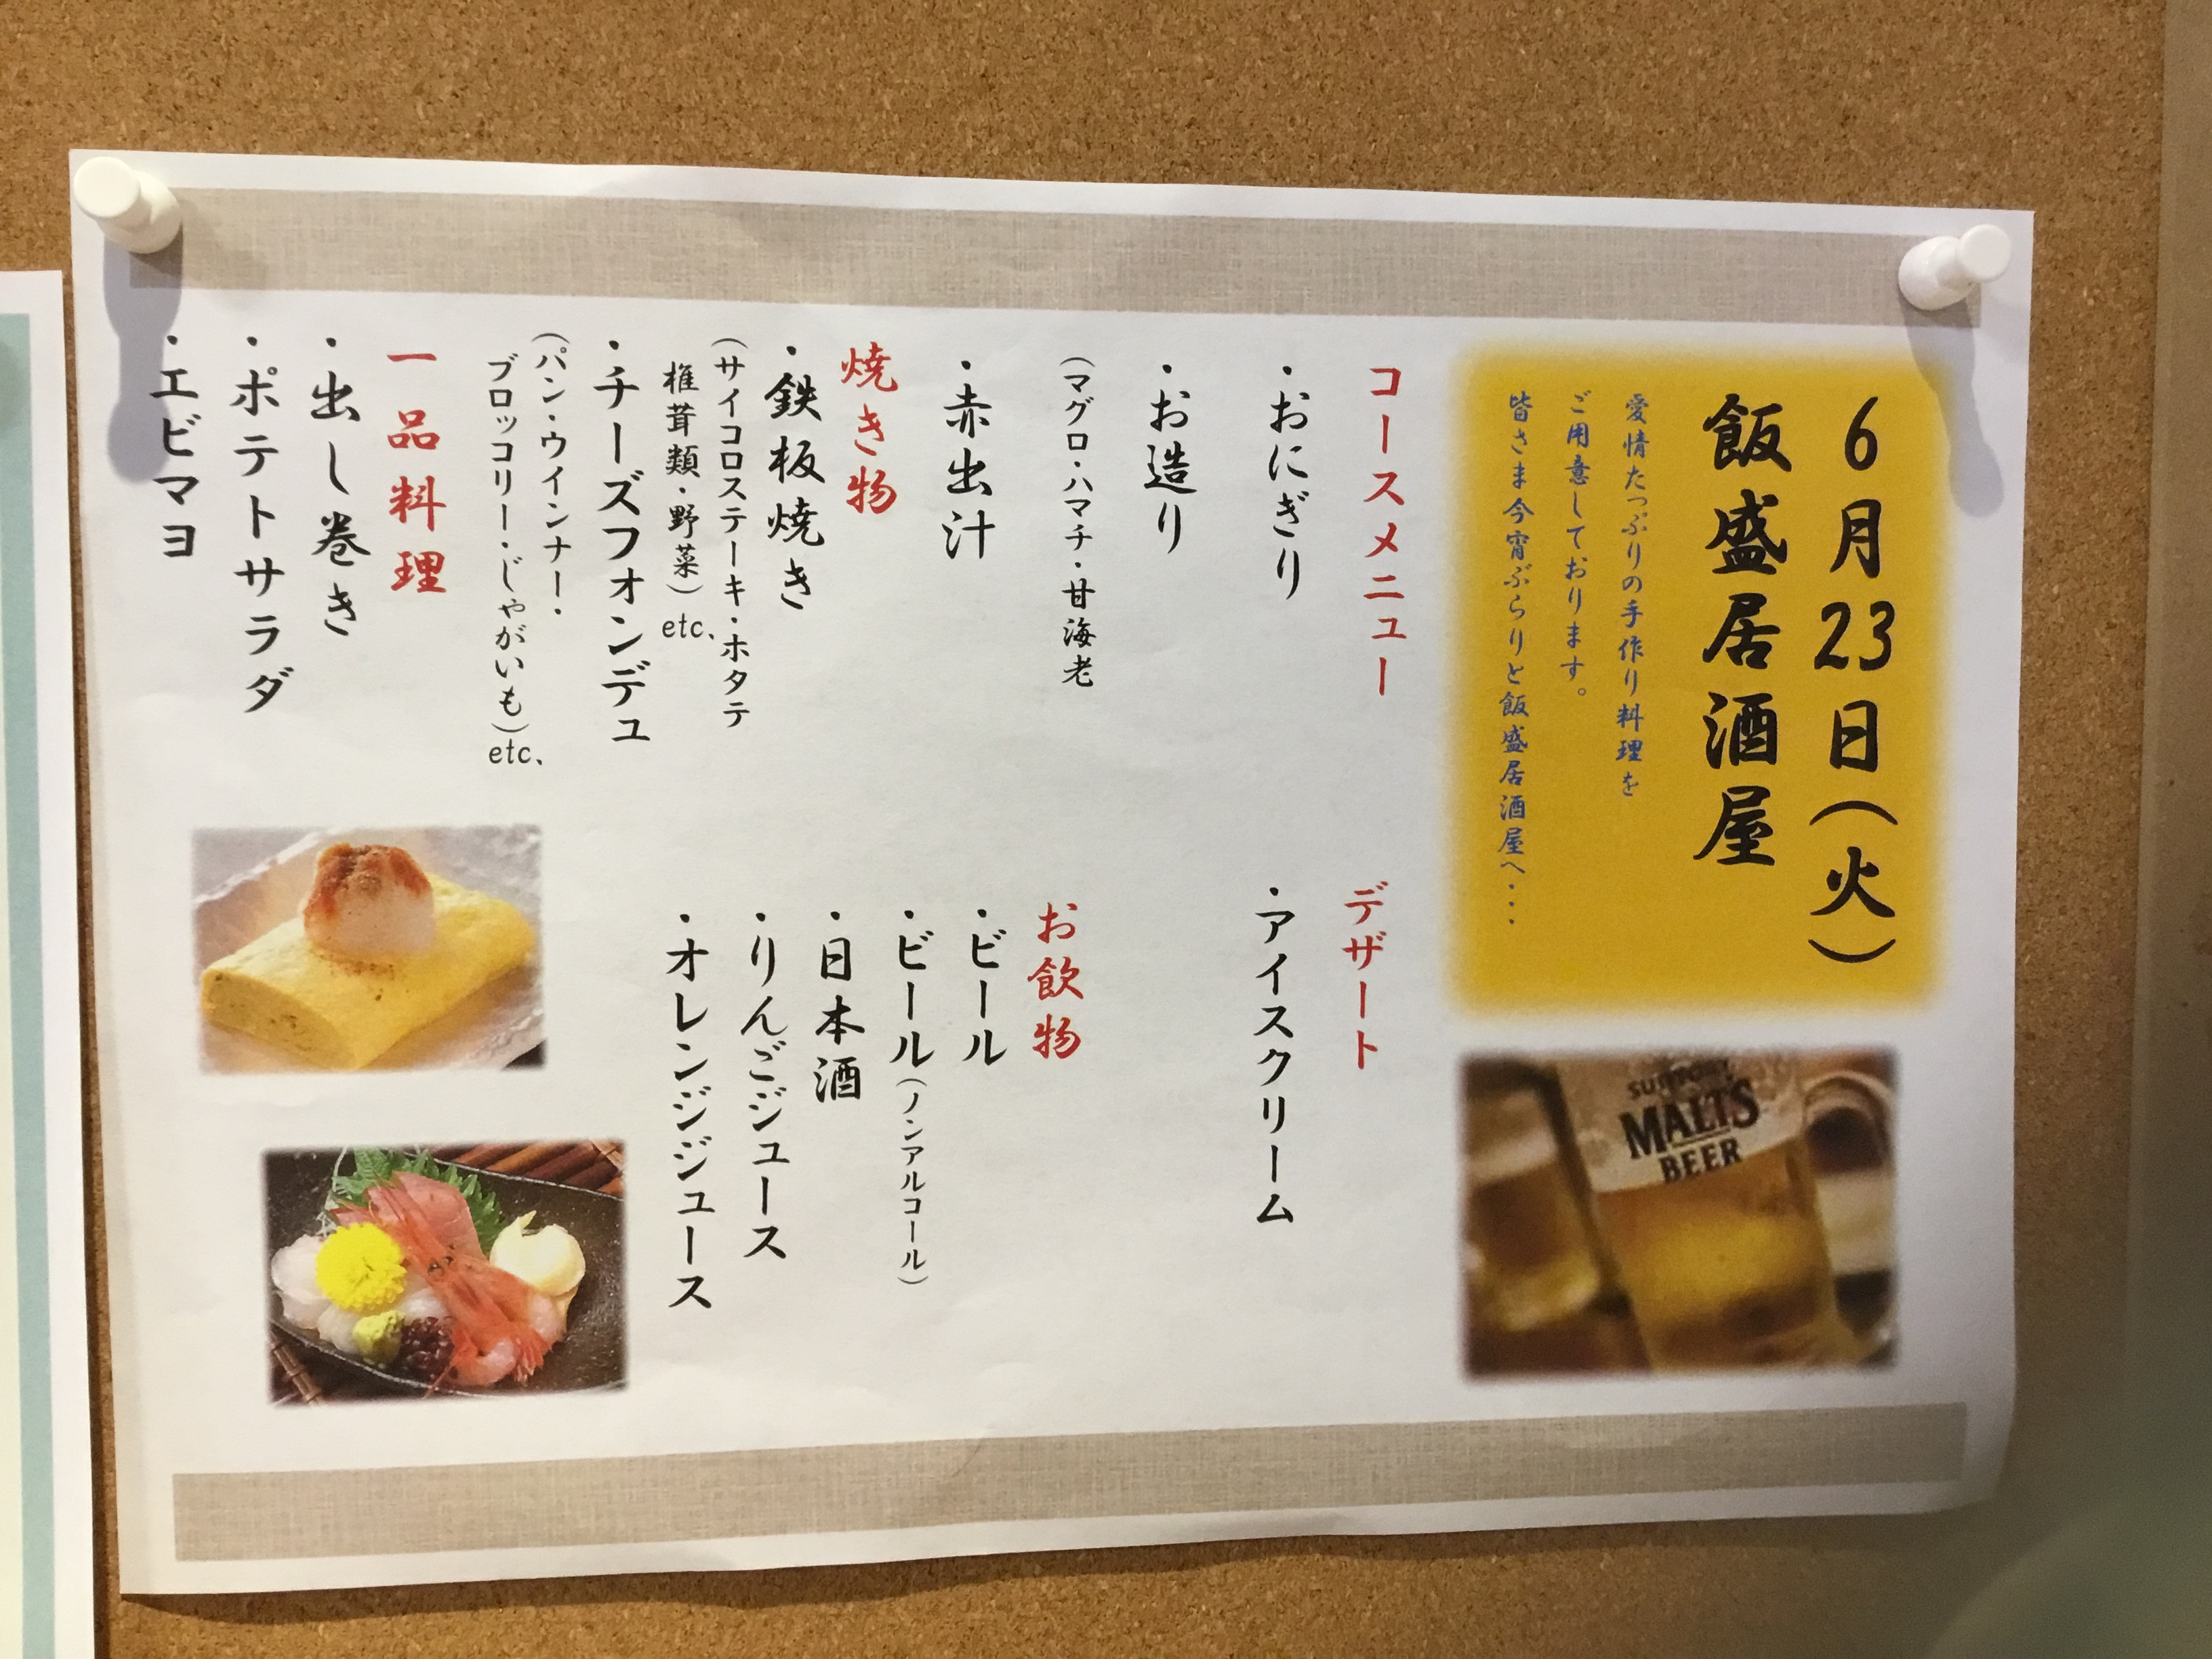 6月23日(火)
飯盛居酒屋
愛情たっぷりの手作り料理を
ご用意しております。
皆さま今宵ぶらりと飯盛居酒屋へ・・・
コースメニュー
・おにぎり
・お造り
(マグロ・ハマチ・甘海老
・赤出汁
焼き物
・鉄板焼き
(サイコロステーキ・ホタテ
椎茸類・野菜)etc、
・チーズフォンデュ
(パン・ウインナー・
ブロッコリー・じゃがいも)etc、
一品料理
・出し巻き
・ポテトサラダ
・エビマヨ
デザート
・アイスクリーム
お飲物
・ビール
・ビール(ノンアルコール)
・日本酒
・りんごジュース
・オレンジジュース
SUNTORY
MALT'S
BEER